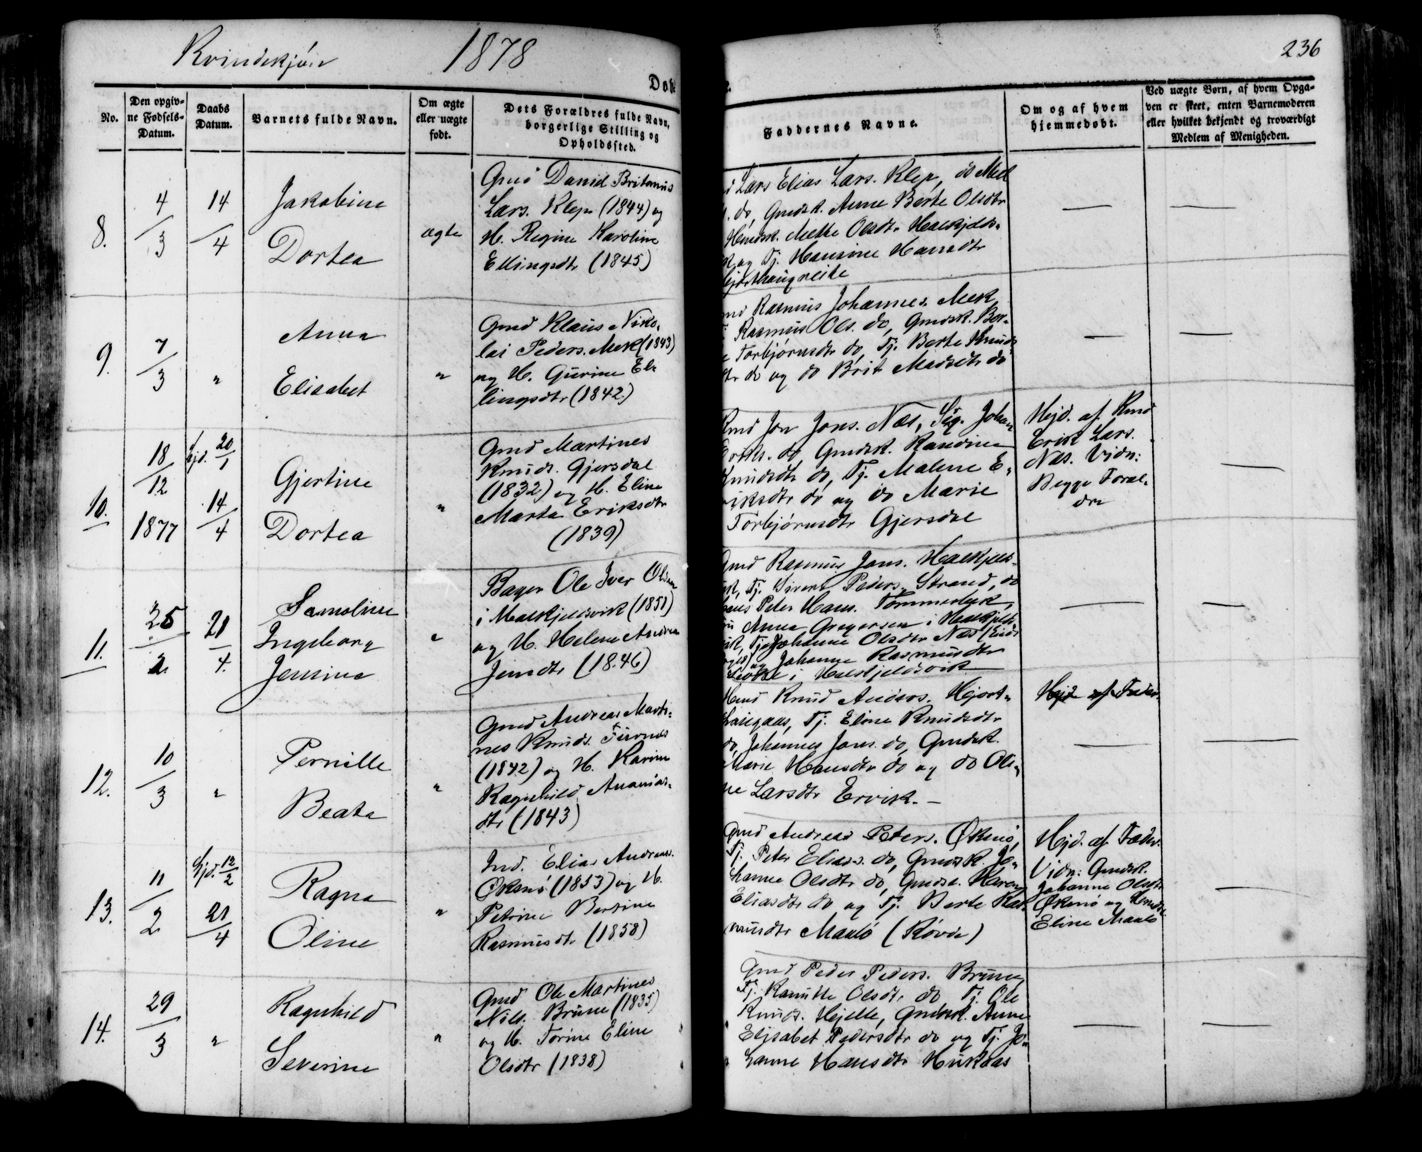 Kvindekjön 1878
236
Døb
No.
Den opgiv-
ne Fødsels-
Datum.
Daabs
Datum.
Barnets fulde Navn.
Om ægte
eller uægte
født.
Dets Forældres fulde Navn,
borgerlige Stilling og
Opholdssted.
Faddernes Navne.
Om og af hvem
hjemmedøbt.
Ved uægte Børn, af hvem Opga-
ven er skeet, enten Barnemoderen
eller hvilket bekjendt og troværdigt
Medlem af Menigheden.
8.
4/3
14/4
Jakobine
Dortea
ægte
Gmd David Britanus
Lars. Klep (1844) og
H. Regine Karoline
Ellingsdtr (1845)
Lars Elias Lars. Klep, do
do, Gmdsk. Anne Berte Olsdtr
Mette Olsdtr
og Tj. Hansine Hansdtr
—
9.
7/3
"
Anna
Elisabet
"
Gmd Klaus Niko-
lai Peders. Mek (1843)
og H. Gurine El-
lingsdtr (1842)
Rasmus Johannes. Mek,
Rasmus Ols. do, Gmdsk. Ber-
Torbjørnsdtr do, Tj. Berte Knuds-
do og do Brit Madsdtr do
—
—
10.
18/12
1877
hjd. 20/1
14/4
Gjertine
Dortea
"
Gmd Martines
Knuds. Gjersdal
(1832) og H. Eline
Marta Eriksdtr
(1839)
Jon Jons. Næs, Johan
do, Gmdsk. Rasmine
Knudsdtr do, Tj. Malene E-
riksdtr do og do Marie
Torbjørnsdtr Gjersdal
Hjd. af Kmd
Erik Lars.
Næs. Vidn:
Begge Foræl-
dre
—
11.
25/2
21/4
Samoline
Ingeborg
Jensine
"
Bager Ole Iver Olsen
i Malekjeldsvik (1851)
og H. Helene Andrea
Jensdtr (1846)
Gmd Rasmus Jans.
Tj. Sivert Peders. Strand, do
Peter Hans. Tømmerdyk,
Anne Gregersen i
Tj. Johanne Olsdtr Næs
og Johanne Rasmusdtr
—
—
12.
10/3
"
Pernille
Beata
"
Gmd Andreas Marti-
nes Knuds. Furnes
(1842) og H. Karine
Ragnhild Ananias-
dtr (1843)
Knud Anders.
Tj. Eline Knudsdtr
do, Johannes Jons. do, Gmdsk.
Marie Hansdtr do og do Oli-
ne Larsdtr Ervik. —
Hjd. af Fader
—
—
13.
11/2
hjd. 12/2
21/4
Ragna
Oline
"
Ind. Elias Andreas.
Øksnø (1853) og H.
Petrine Bertine
Rasmusdtr (1858)
Gmd Andreas Peters. Øksnø,
Tj. Peter Elias. do, Gmdsk. Jo-
hanne Olsdtr do, Gmdsk. Karen
Eliasdtr do og Tj. Berte Ras-
musdtr Maalö (Røvde)
Hjd. af Fader
Vidn: Gmdsk.
Johanne Olsdtr
Øksnø og
Eline Maalö
—
14.
29/3
"
Ragnhild
Severine
"
Gmd Ole Martines
Nils. Brune (1835)
og H. Torine Eline
Olsdtr (1838)
Gmd Peder Peders. Brune,
Tj. Olsdtr do Tj. Ole
Knuds. Hjelle, Gmdsk. Anne
Elisabet Pedersdtr do og Tj. Jo-
hanne Hansdtr
—
—